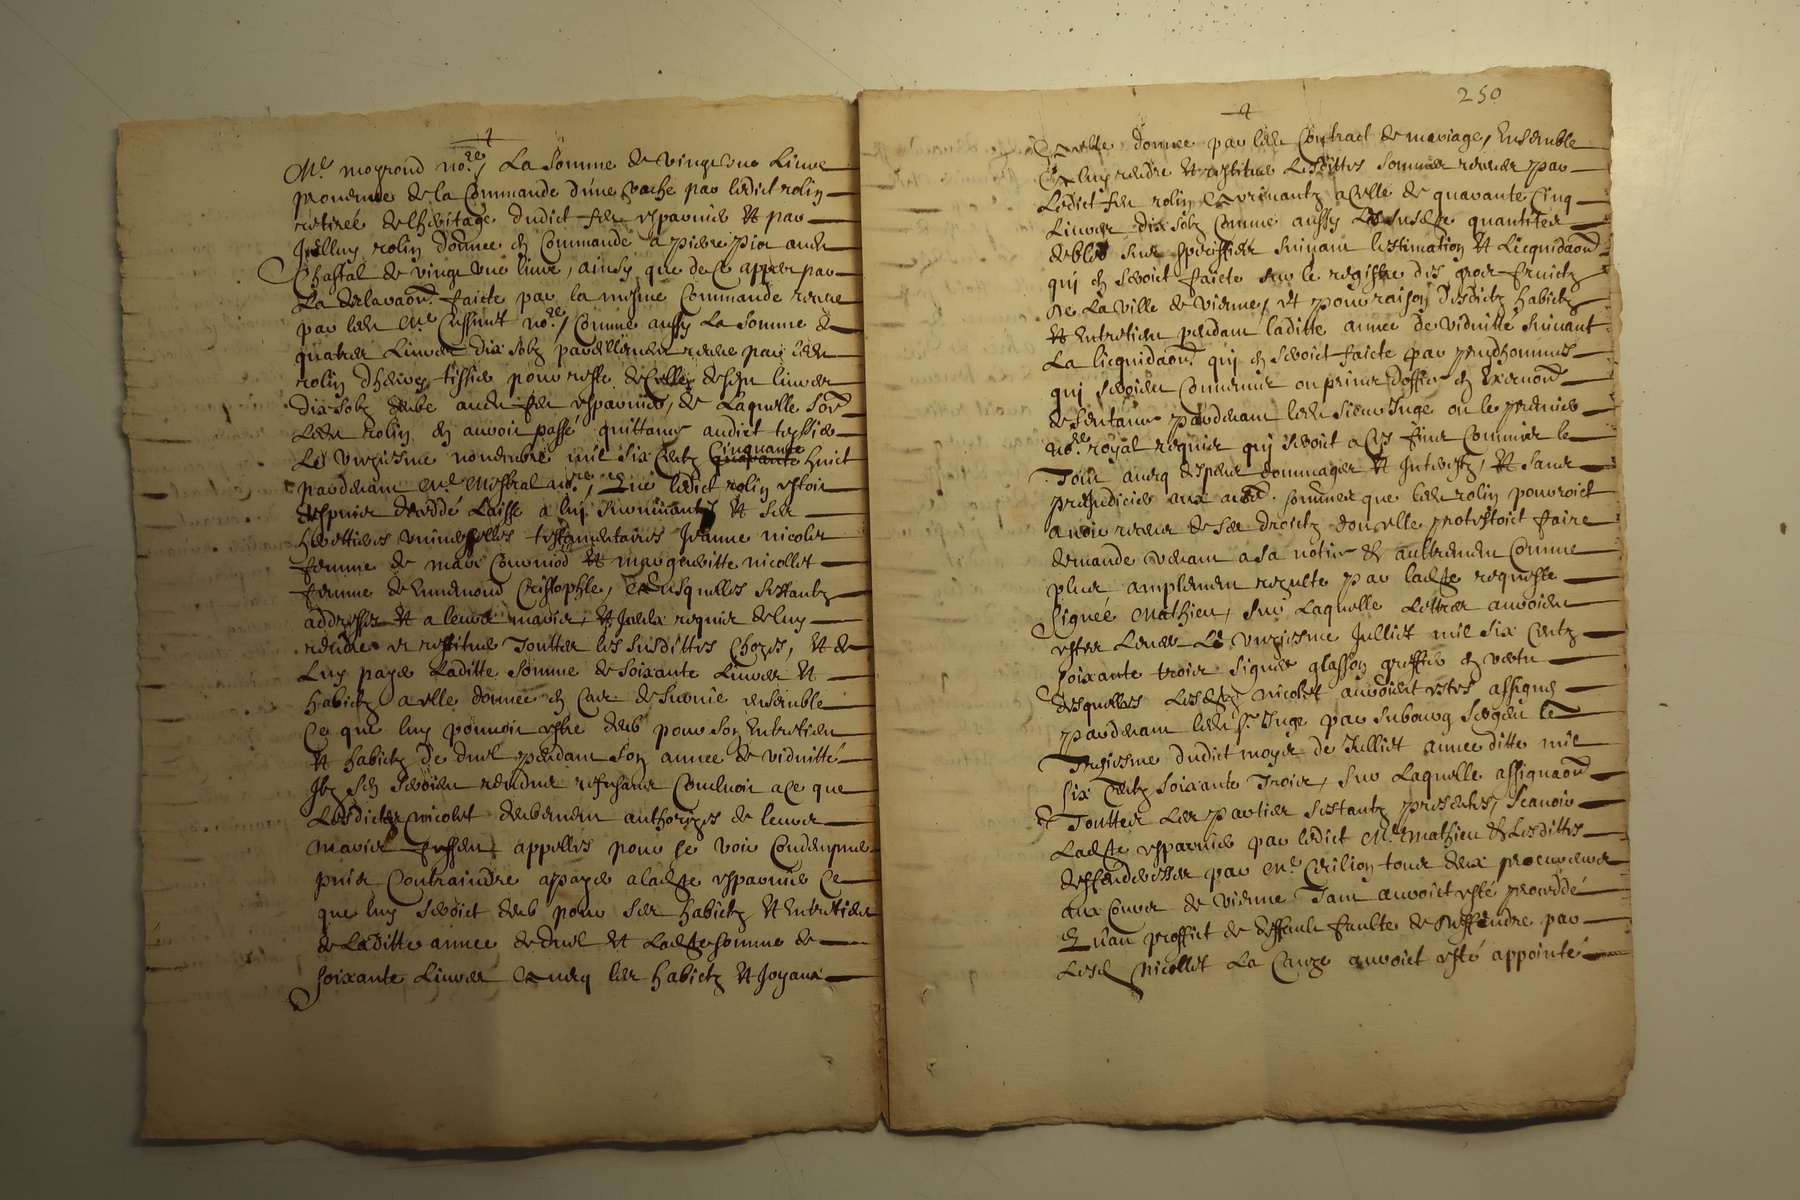 Me mograud no.re, La Somme de vingt une Livre
provenue de la Commande dune vache par ledict rolin
retirée de lheritage dudict feu esparnier et par
Jcelluy rolin donnee en Commande a pierre pion audit
Chastal de vingt une livre, ainsy que de ce apper par
La declaraon. faicte par la mesme Commande receue
par ledit Me Cussinet no.re, Comme aussy La Somme de
quatre Livres dix solz pareillement receue par ledit
rolin tissier pour reste de Celle de sept livres
dix solz deube audit feu esparnier, de Laquelle som.
Ledit rolin en auroit passé quittance audict tissier
Le vingtiesme novembre mil six Centz Cinquante huict
pardevant Me Mistral no.re, Que ledict rolin estoit
despuis decedé Laisse a luy survivantz et ses
herettieres universelles testamentaires Jeanne nicolet
femme de et margueritte nicollet
femme de Cristophle, Ausquelles sestantz
addressée et a leurs maries, et Jcelles requis de luy
rendre et restituer Touttes les susdittes choses, et de
Luy payer Laditte somme de soixante Livres et
habictz a elle donnée en Cas de survie ensemble
Ce que luy pouvoit estre deub pour son Entretien
et habictz de dueil pendant son annee de viduitté
Ilz sen seroient rendues refusantes Concluoit a ce que
Lesdictes nicolet deubement authorizés de leurs
maries fussent appellés pour se voir Condempner
puis Contraindre a payer a ladte esparnier Ce
que luy seroict deub pour ses habictz et Entretien
de Laditte annee de dueil et Ladte somme de
soixante Livres Avecq les habictz et Joyaux
250
A elle donnee par ledit Contract de mariage, Ensemble
A luy rendre et restituer Lesdittes sommes receues par
Ledict feu rolin revenantz a Celle de quarante Cinq
Livres dix solz Comme aussy Les susdte quantites
de bled sus speciffiés suivant lestimation et Licquidaon.
qui en seroit faicte sur le registre des gros fruictz
de La Ville de Vienne, et pour raison desdictz habictz
et Entretien pendant laditte annee de viduitté suivant
La licquidaon. qui en seroict faicte par prudhommes
qui seroient Convenus ou prins doffice en Execuon.
de sentance pardevant ledit sieur Juge ou le premier
no.re royal requis qui seroit a Ces fins Commis le
Tout avecq despens dommages et Jnterestz, et sans
prejudicier aux autres sommes que ledit rolin pourroict
avoir receu de ses droictz dont elle protestoict faire
demande venant a sa notice et aultrement Comme
plus amplement rezulte par ladte requeste
signee Mathieu, sur Laquelle Lettres auroient
estes Levees Le vingtiesme Julliet mil six Centz
soixante trois signes glasson greffier en vertu
desquelles Lesdtes nicolet auroient estes assignes
pardevant ledit sr. Juge par sergent le
Treziesme dudict moys de Julliet annee ditte mil
six Centz soixante Trois, sur Laquelle assignaon.
Touttes Les parties sestantz presentes, scavoir
Ladte esparnier par ledict Me. Mathieu et Lesdittes
deffenderesses par Me. Cecilion tous deux procureurs
aux Cours de Vienne Tant auroict esté procedé
Quau proffict de deffault faulte de deffendre par
Lesd. Nicollet La Cauze auroict esté appointé